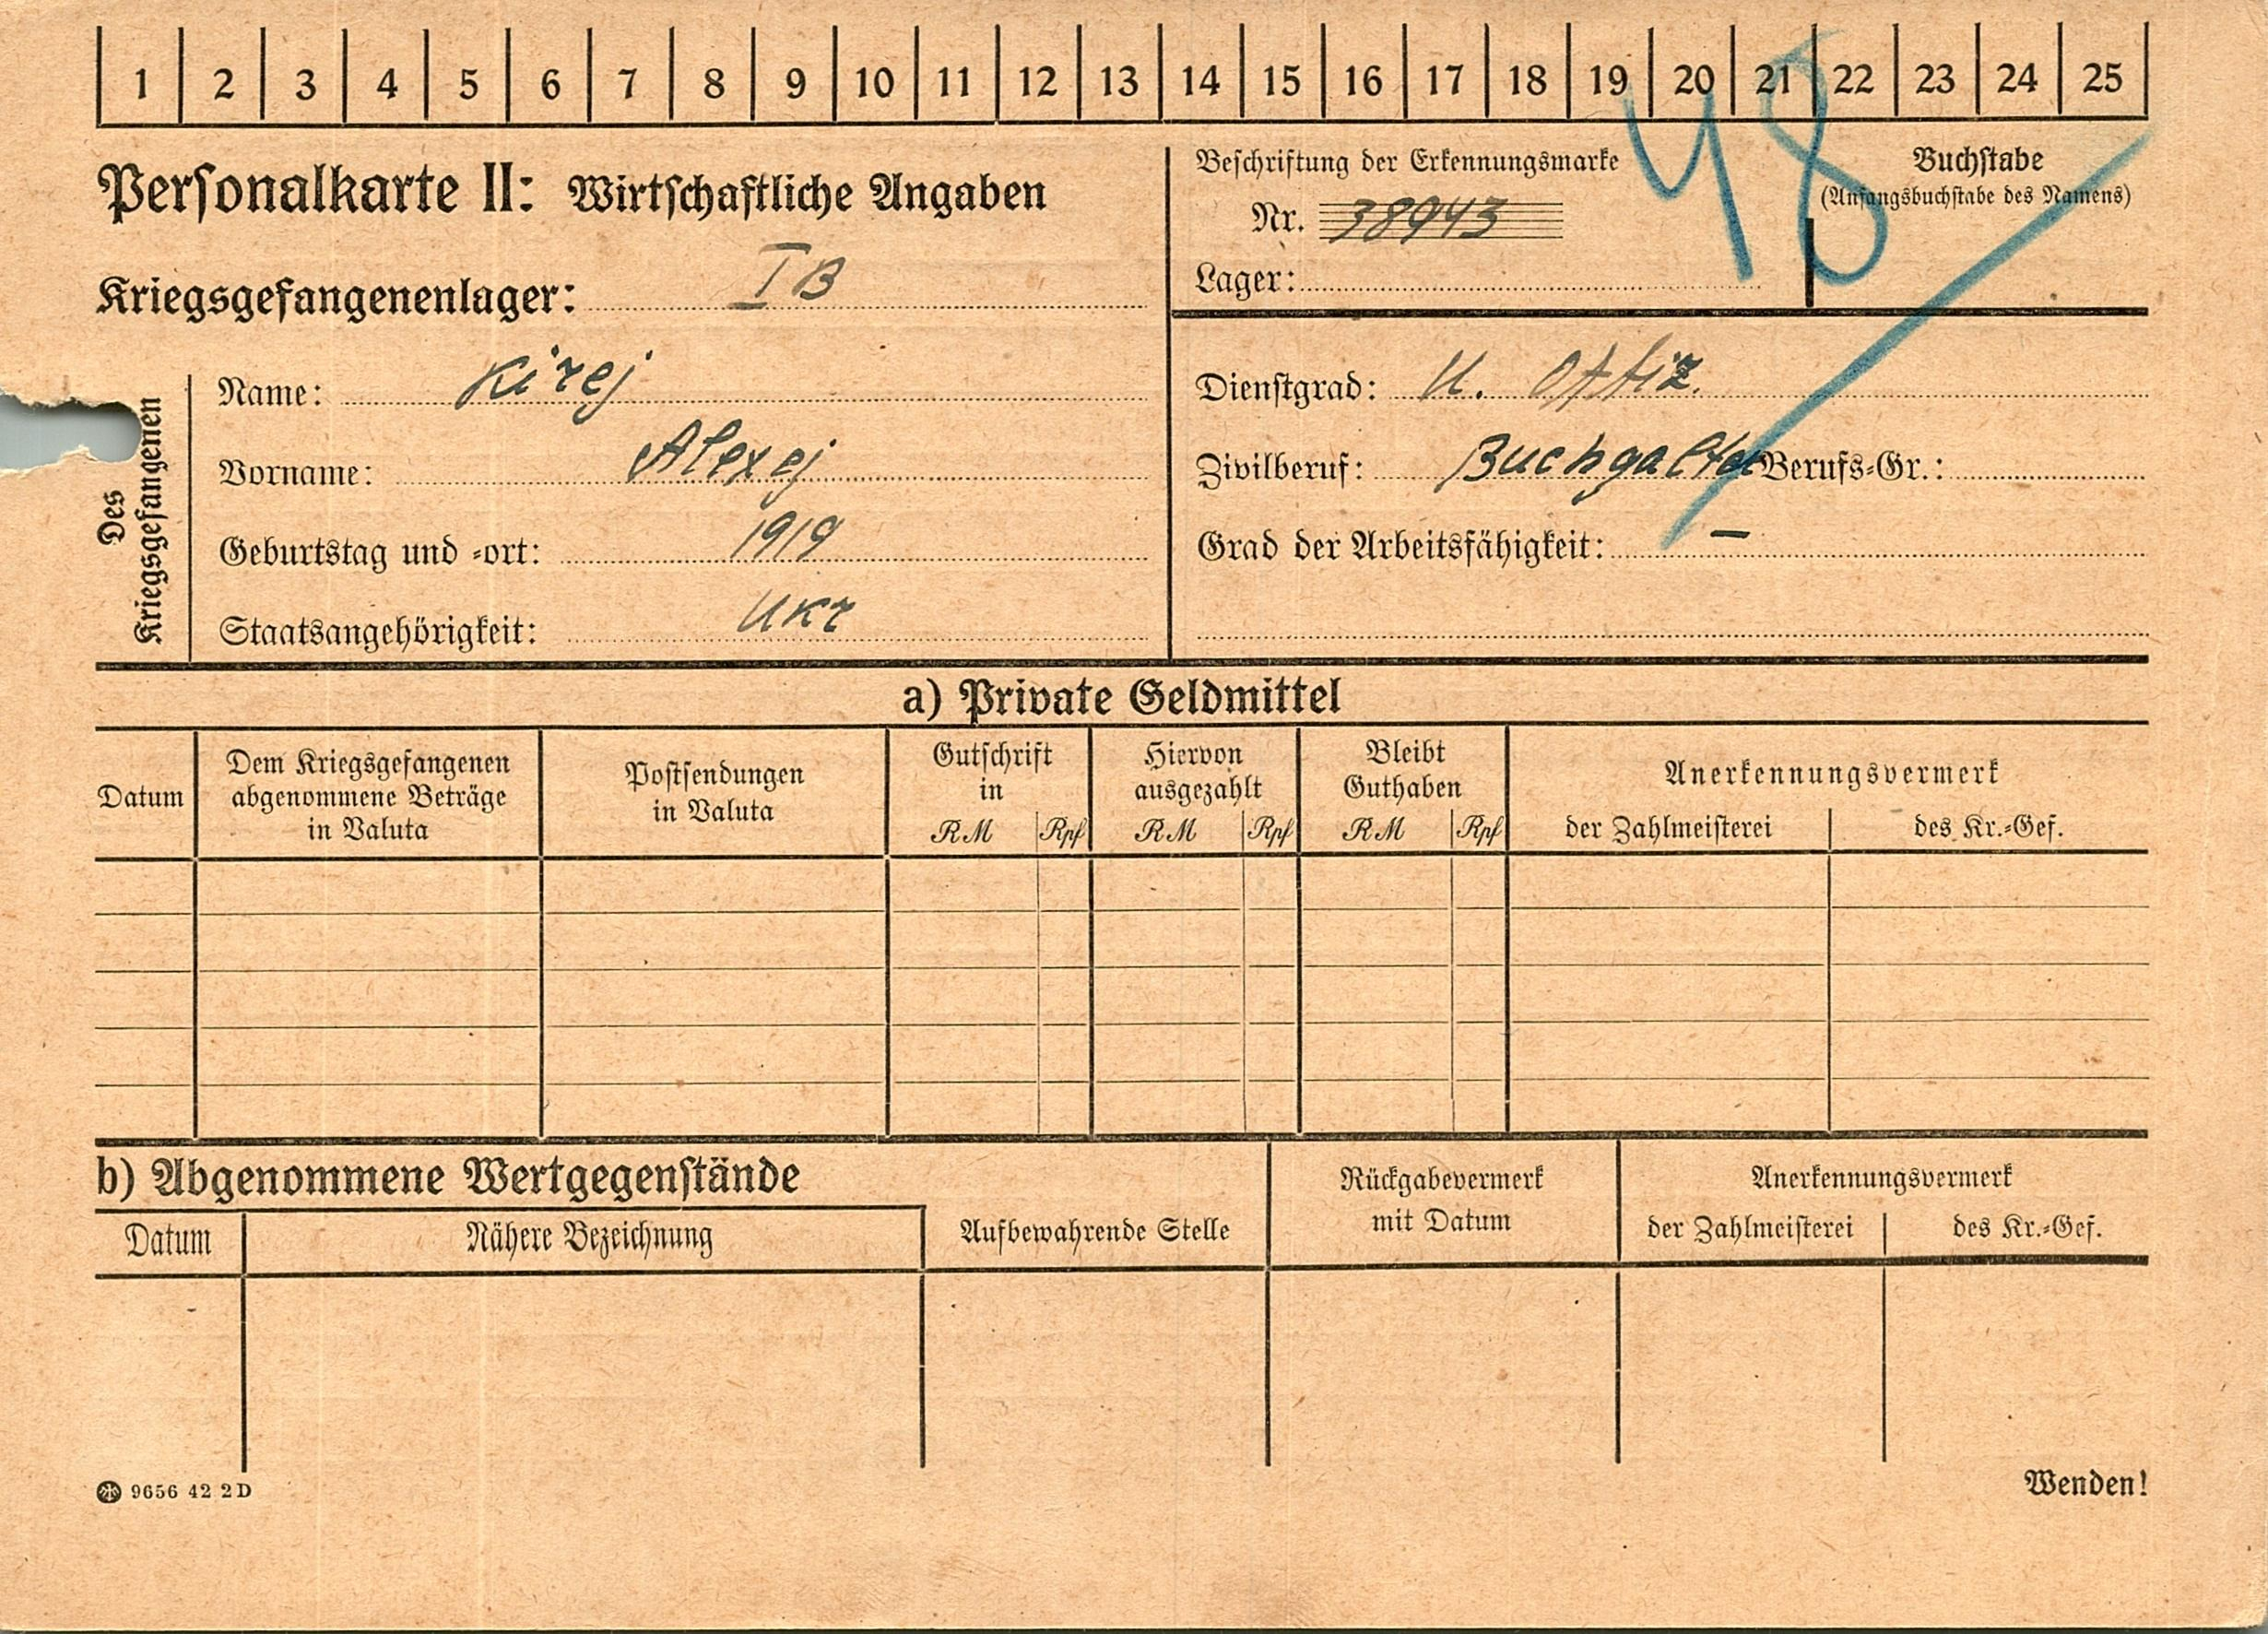 1 2 3 4 5 6 7 8 9 10 11 12 13 14 15 16 17 18 19 20 21 22 23 24 25
48
Personalkarte II: Wirtschaftliche Angaben
Beschriftung der Erkennungsmarke
Nr. 38943
Lager:
Buchstabe
(Anfangsbuchstabe des Namens)
Kriegsgefangenenlager: I B
Des Kriegsgefangenen
Name: Kirej
Vorname: Alexej
Geburtstag und -ort: 1919
Staatsangehörigkeit: Ukr
Dienstgrad: U. Offiz.
Zivilberuf: Buchgalter Berufs-Gr.:
Grad der Arbeitsfähigkeit: —
a) Private Geldmittel
Datum
Dem Kriegsgefangenen
abgenommene Beträge
in Valuta
Postsendungen
in Valuta
Gutschrift
in
RM Rpf
Hiervon
ausgezahlt
RM Rpf
Bleibt
Guthaben
RM Rpf
Anerkennungsvermerk
der Zahlmeisterei des Kr.-Gef.
b) Abgenommene Wertgegenstände
Datum
Nähere Bezeichnung
Aufbewahrende Stelle
Rückgabevermerk
mit Datum
Anerkennungsvermerk
der Zahlmeisterei des Kr.-Gef.
9656 42 2D
Wenden!